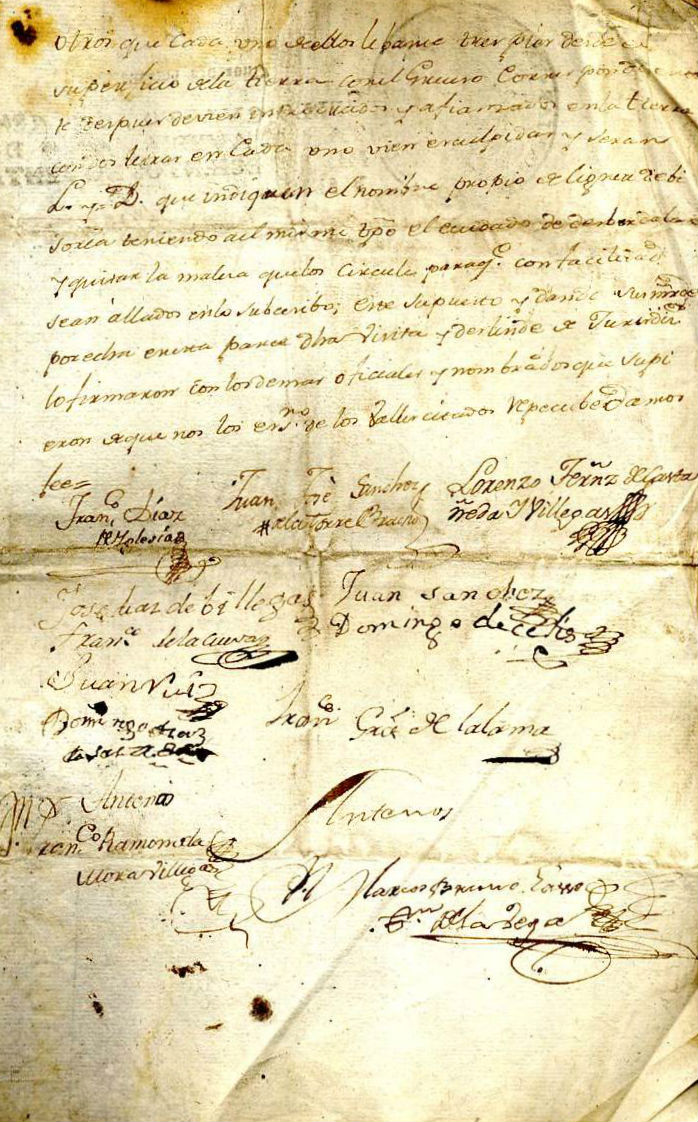 otros que Cada uno de ellos lebante tres pies desde la
superficie de la tierra con el Grueso Correspondiente
despues de vien introducidos y afianzados en la tierra
con dos letras en Cada uno vien esculpidas y seran
L. y B. que indiquen el nombre propio de
teniendo al mismo tpo el cuidado de
y quitar la maleza que los Circule paraq.e con facilidad
sean allados en lo subcesibo; en este supuesto y dando
por echa en esta parte dha Visita y deslinde de Jurisdi.on
lo firmaron con los demas oficiales y nombrados que supi
eron de que nos los es.nos de los Valles citados damos
fee=
Fran.co Diaz
de Yglesia
Juan Sanchez
de la Torre
Lorenzo Fern̄z de Casta
ñeda y Villegas
Jose Luis de billegas
Juan Sanchez
Fran.co de la Cueva
Domingo de Cebios
Juan Ruiz
Domingo diaz
Garz de la lama
Antemi
Antenos
Fran.co Ramon de la
Mora Villegas
Marcos Bruno
de la Vega